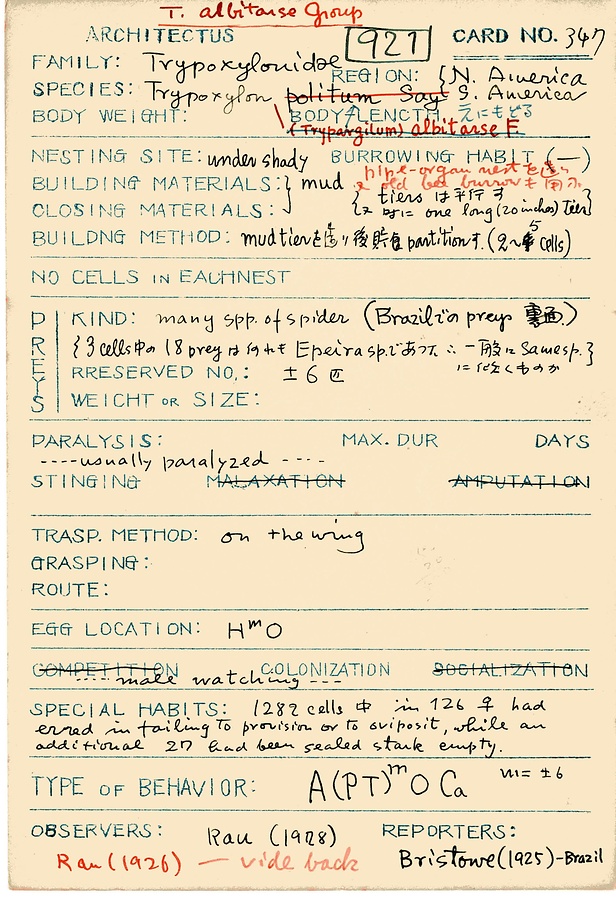 T. albitarse Group
ARCHITECTUS 921 CARD NO. 347
FAMILY: Trypoxylonidae REGION: {N. America
SPECIES: Trypoxylon politum Say S. America
BODY WEIGHT: BODY LENGTH えにもどる
(Trypargilum) albitarse F.
NESTING SITE: under shady BURROWING HABIT (—)
pipe-organ nest を
BUILDING MATERIALS: } mud old bee burrow も
{ tiers は平行す
CLOSING MATERIALS: one long (20 inches) tier}
BUILDNG METHOD: mud tierを り後貯食 partitionす. (2~5 cells)
NO CELLS IN EACHNEST
PREYS
KIND: many spp. of spider (Brazilでの preys 裏面)
{3 cells中の 18 prey は何れも Epeira sp. であった ∴ 一般に same sp.}
RRESERVED NO,: ±6 匹 に
WEIGHT OR SIZE:
PARALYSIS: MAX. DUR DAYS
----usually paralyzed ----
STINGING MALAXATION AMPUTATION
TRASP. METHOD: on the wing
GRASPING:
ROUTE:
EGG LOCATION: HᵐO
COMPETITION COLONIZATION SOCIALIZATION
---- male watching ---
SPECIAL HABITS: 1282 cells 中 in 126 ♀ had
erred in failing to provision or to oviposit, while an
additional 27 had been sealed stark empty.
TYPE OF BEHAVIOR: A(PT)ᵐO Ca m = ±6
OBSERVERS: Rau (1928) REPORTERS:
Rau (1926) — vide back Bristowe (1925)-Brazil